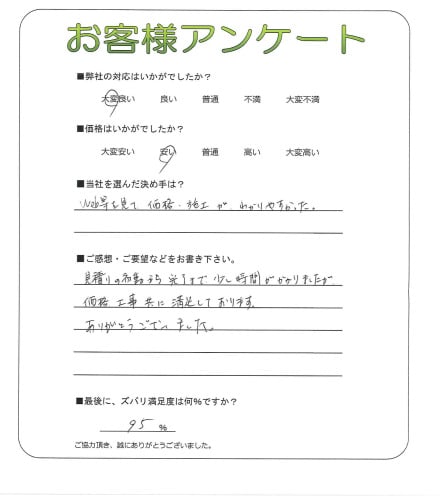 お客様アンケート
■弊社の対応はいかがでしたか？
大変良い 良い 普通 不満 大変不満
■価格はいかがでしたか？
大変安い 安い 普通 高い 大変高い
■当社を選んだ決め手は？
Web等を見て 価格・施工が、わかりやすかった。
■ご感想・ご要望などをお書き下さい。
見積りの 完了まで少し時間がかかりましたが
価格 工事 共に 満足しております。
ありがとうございました。
■最後に、ズバリ満足度は何％ですか？
95 ％
ご協力頂き、誠にありがとうございました。